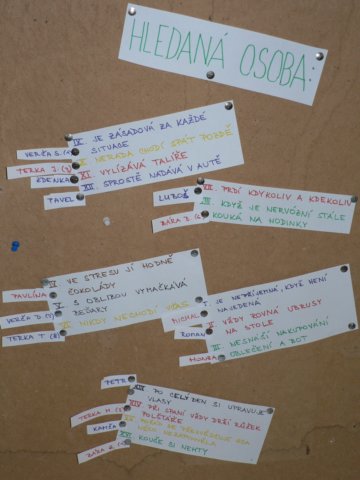 HLEDANÁ OSOBA:
IX. JE ZÁSADOVÁ ZA KAŽDÉ
SITUACE
X. NERADA CHODÍ SPÁT POZDĚ
XI. VYLIZÁVÁ TALÍŘE
XII SPROSTĚ NADÁVÁ V AUTĚ
VERČA S.
TERKA J.
ZDENKA
PAVEL
VII. PRDÍ KDYKOLIV A KDEKOLIV
VIII. KDYŽ JE NERVÓZNÍ STÁLE
KOUKÁ NA HODINKY
LUBOŠ
BÁRA
IV VE STRESU JÍ HODNĚ
ČOKOLÁDY
V S OBLIBOU VYMAČKÁVÁ
BEĎARY
VI. NIKDY NECHODÍ VČAS
PAVLÍNA
VERČA D.
TERKA T.
I. JE NEPŘÍJEMNÁ, KDYŽ NENÍ
NAJEDENÁ
II. VŽDY ROVNÁ UBRUSY
NA STOLE
III. NESNÁŠÍ NAKUPOVÁNÍ
OBLEČENÍ A BOT
MICHAL
ROMAN
MONIKA
XIII. PO CELÝ DEN SI UPRAVUJE
VLASY
XIV. PŘI SPANÍ VŽDY DRŽÍ RŮŽEK
POLŠTÁŘE
XVI KOUŠE SI NEHTY
PETR
TERKA H
KAMČA
BÁRA